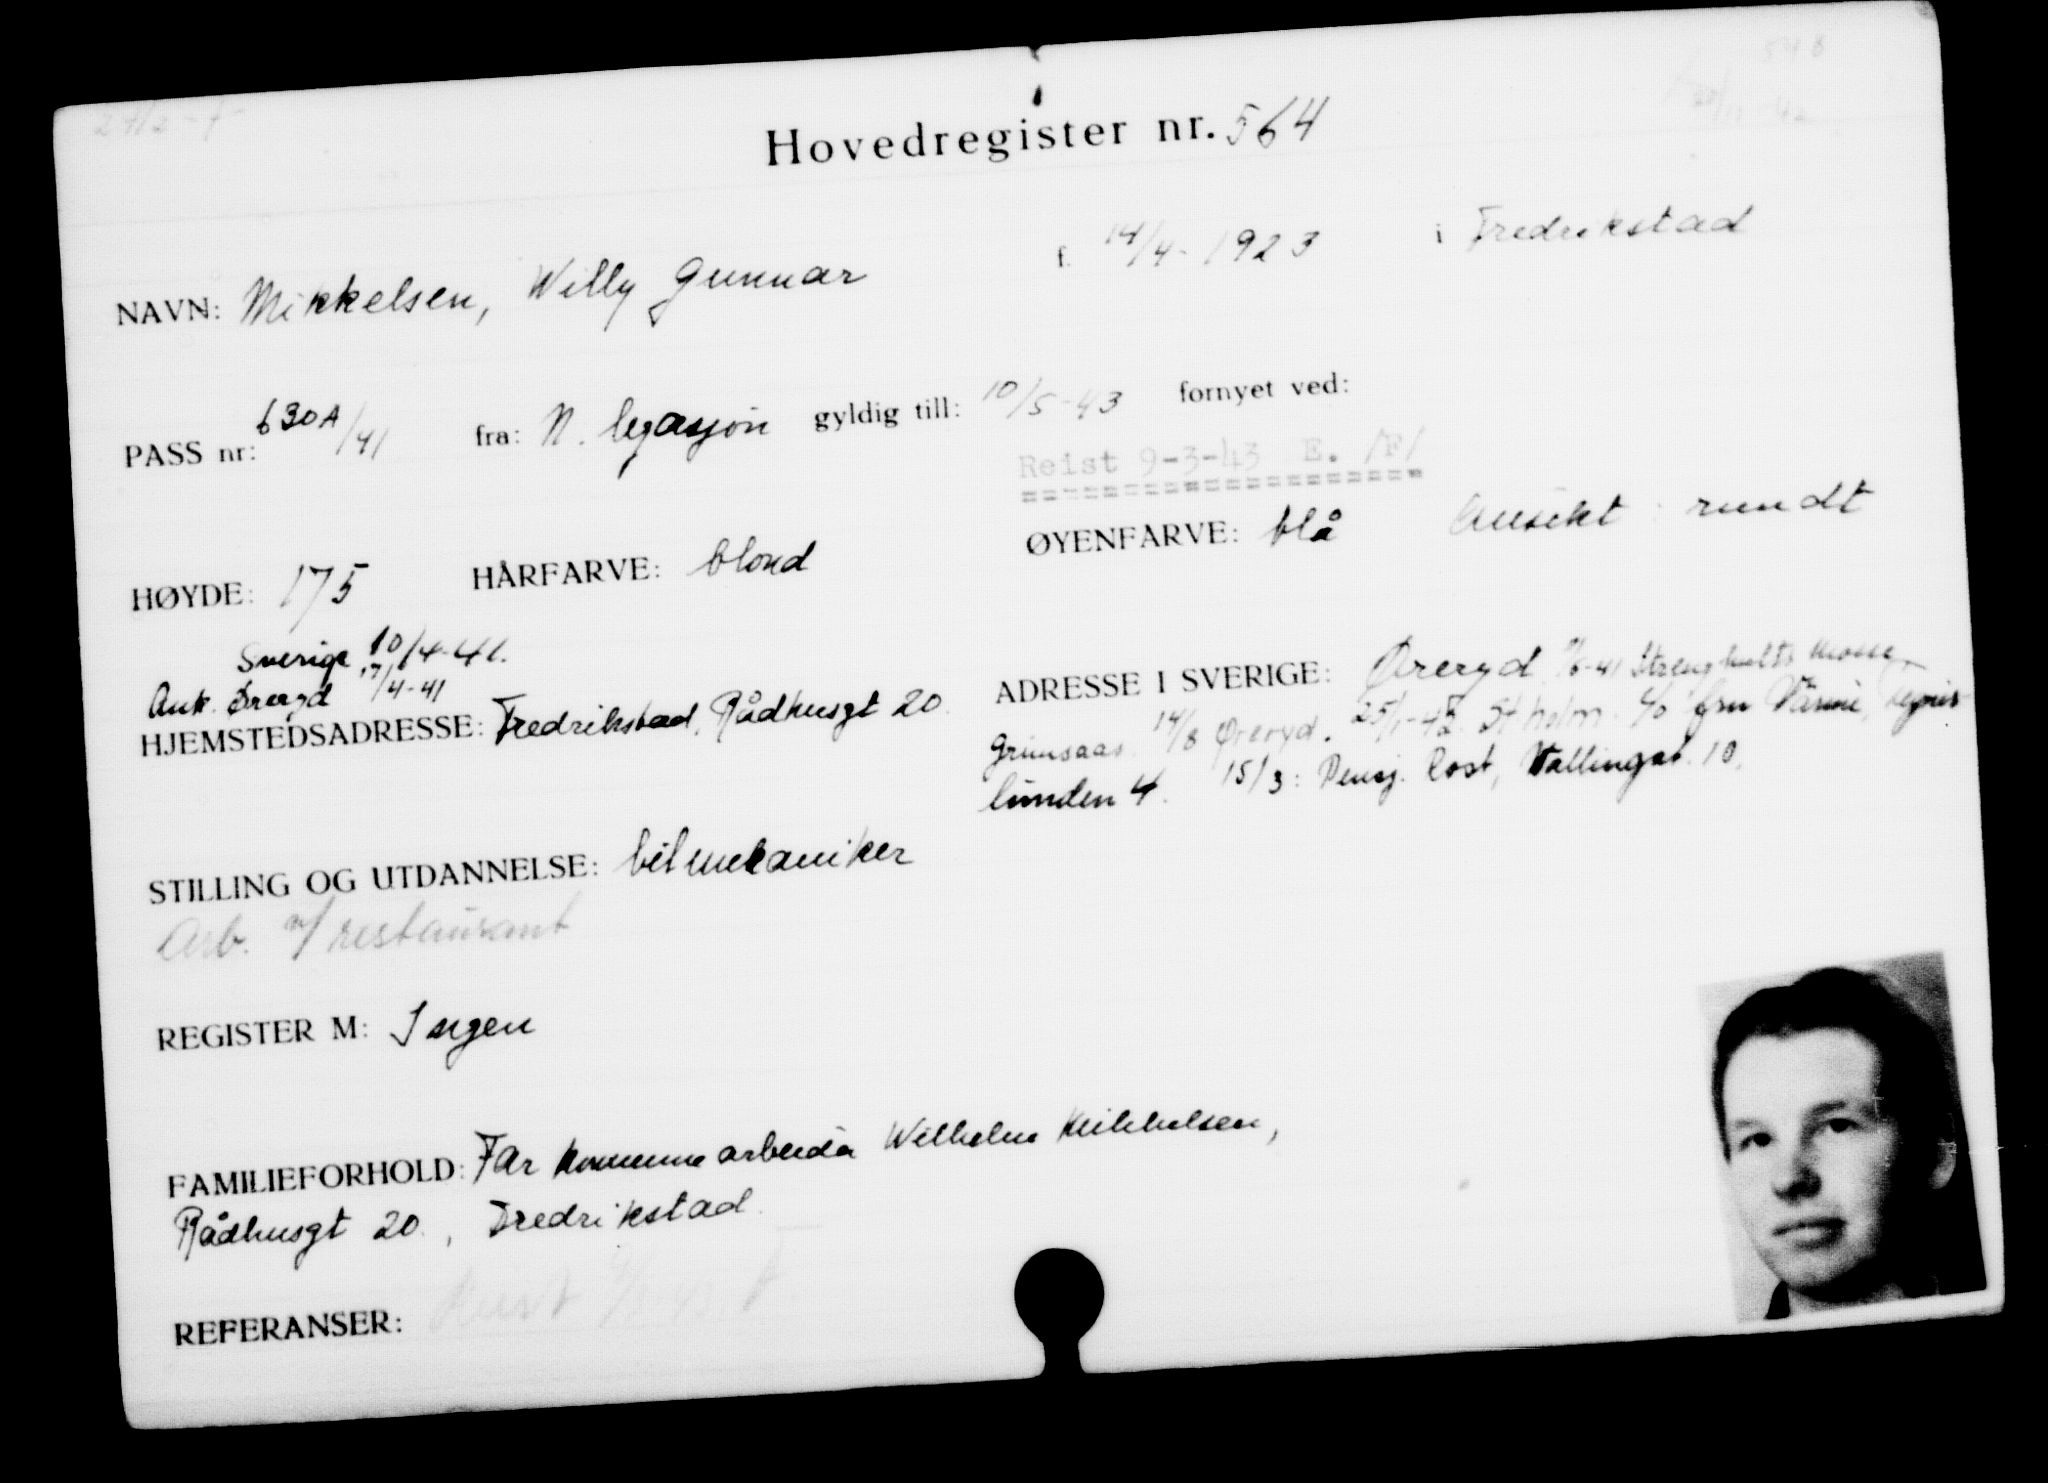 Hovedregister nr. 564
NAVN: Mikkelsen, Willy Gunnar f. 14/4-1923 i Fredrikstad
PASS nr: 630A/41 fra: N. legasjon gyldig till: 10/5-43 fornyet ved:
Reist 9-3-43 E. /F/
HØYDE: 175 HÅRFARVE: blond ØYENFARVE: blå Ansikt rundt
Sverige 10/4-41.
Ank. Øreryd 17/4-41
HJEMSTEDSADRESSE: Fredrikstad, Rådhusgt 20.
ADRESSE I SVERIGE: Øreryd
Grimsaas. 14/8 Øreryd. 25/1-42 St.holm. c/o fru
lunden 4. 15/3: Pensj. Rost, Wallingat. 10.
STILLING OG UTDANNELSE: bilmekaniker
Arb. v/ restaurant
REGISTER M: Ingen
FAMILIEFORHOLD: Far kommunearbeider Wilhelm Mikkelsen,
Rådhusgt 20., Fredrikstad.
REFERANSER: